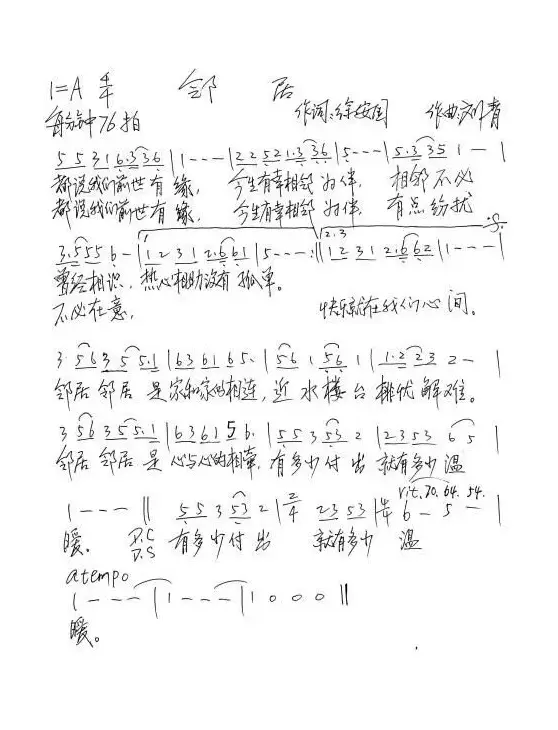 1=A 4/4 邻 居
每分钟76拍 作词:徐按国 作曲:刘青
5 5 3 1 6·3 3 6 | 1 - - - | 2 2 5 2 1·3 3 6 | 5 · - - - | 5·3 3 5 1 - |
都说我们前世有缘, 今生有幸相邻为伴, 相邻不必
都说我们前世有缘, 今生有幸相邻为伴, 有点纷扰
3·5 5 5 6 - | 1 1 2 3 1 2·6 6 1 | 5 - - - :|| 2.3 1 2 3 1 2·6 6 2 | 1 - - - |
曾经相识, 热心相助没有孤单。
不必在意, 快乐就在我们心间。
3 · 5 6 3 5 5·1 | 6 3 6 1 6 5· | 5 6 1 5 6 1 | 1·2 2 3 2 - |
邻居邻居是家和家的相连, 近水楼台排忧解难。
3 5 6 3 5 5·1 | 6 3 6 1 5 6· | 5 5 3 5 3 2 | 2 3 5 3 6 5 |
邻居邻居是心与心的相牵, 有多少付出就有多少温
rit. 70. 64. 54.
1 - - - || 5 5 3 5 3 2 | 2/4 2 3 5 3 | 4/4 6 - 5 - |
暖。 D.C D.S 有多少付出 就有多少 温
a tempo
1 - - - | 1 - - - | 1 0 0 0 ||
暖。